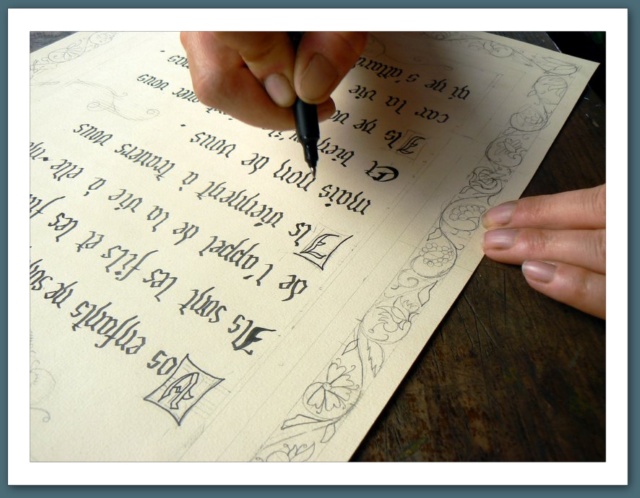 Vos enfants ne
Ils sont les fils et les
de l'appel de la vie à elle
Ils viennent à travers vous
mais non de vous .
Et bien vous
Ils ne
car la vie